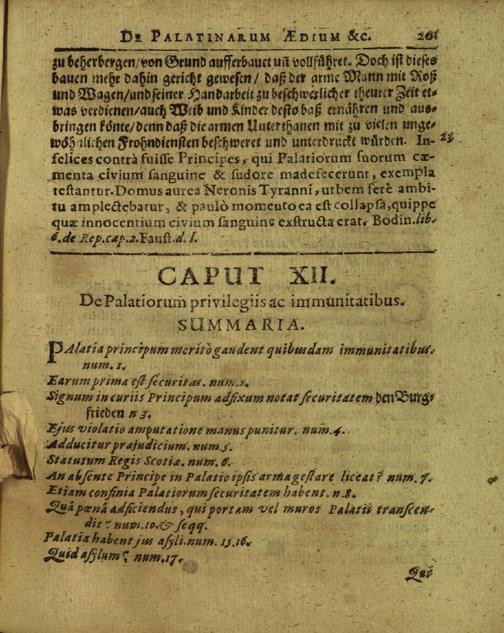 DE PALATINARUM ÆDIUM &c. 201
zu beherbergen/von Grund aufferbauet uñ vollführet. Doch ist dieses
bauen mehr dahin gericht gewesen/ daß der arme Mann mit Roß
und Wagen/und seiner Handarbeit zu beschwerlicher theurer Zeit et-
was verdienen/auch Weib und Kinder desto baß ernähren und aus-
bringen könte/denn daß die armen Unterthanen mit zu vielen unge-
wöhnlichen Frohndiensten beschweret und unterdruckt würden. In-
felices contrà fuisse Principes, qui Palatiorum suorum cæ-
menta civium sanguine & sudore madefecerunt, exempla
testantur. Domus aurea Neronis Tyranni, urbem ferè ambi-
tu amplectebatur, & paulò momento ea est collapsa, quippe
quæ innocentium civium sanguine exstructa erat. Bodin. lib.
6. de Rep. cap. 2. Faust. d. l.
CAPUT XII.
De Palatiorum privilegiis ac immunitatibus.
SUMMARIA.
PAlatia principum meritò gaudent quibusdam immunitatibus.
num. 1.
Earum prima est securitas. num. 2.
Signum in curiis Principum adfixum notat securitatem den Burg-
frieden n 3.
Ejus violatio amputatione manus punitur. num. 4.
Adducitur præjudicium. num. 5.
Statutum Regis Scotiæ. num. 6.
An absente Principe in Palatio ipsis arma gestare liceat? num. 7.
Etiam confinia Palatiorum securitatem habent. n. 8.
Quâ pœnâ adficiendus, qui portam vel muros Palatii transcen-
dit? num. 10. & seqq.
Palatia habent jus asyli. num. 15. 16.
Quid asylum? num. 17.